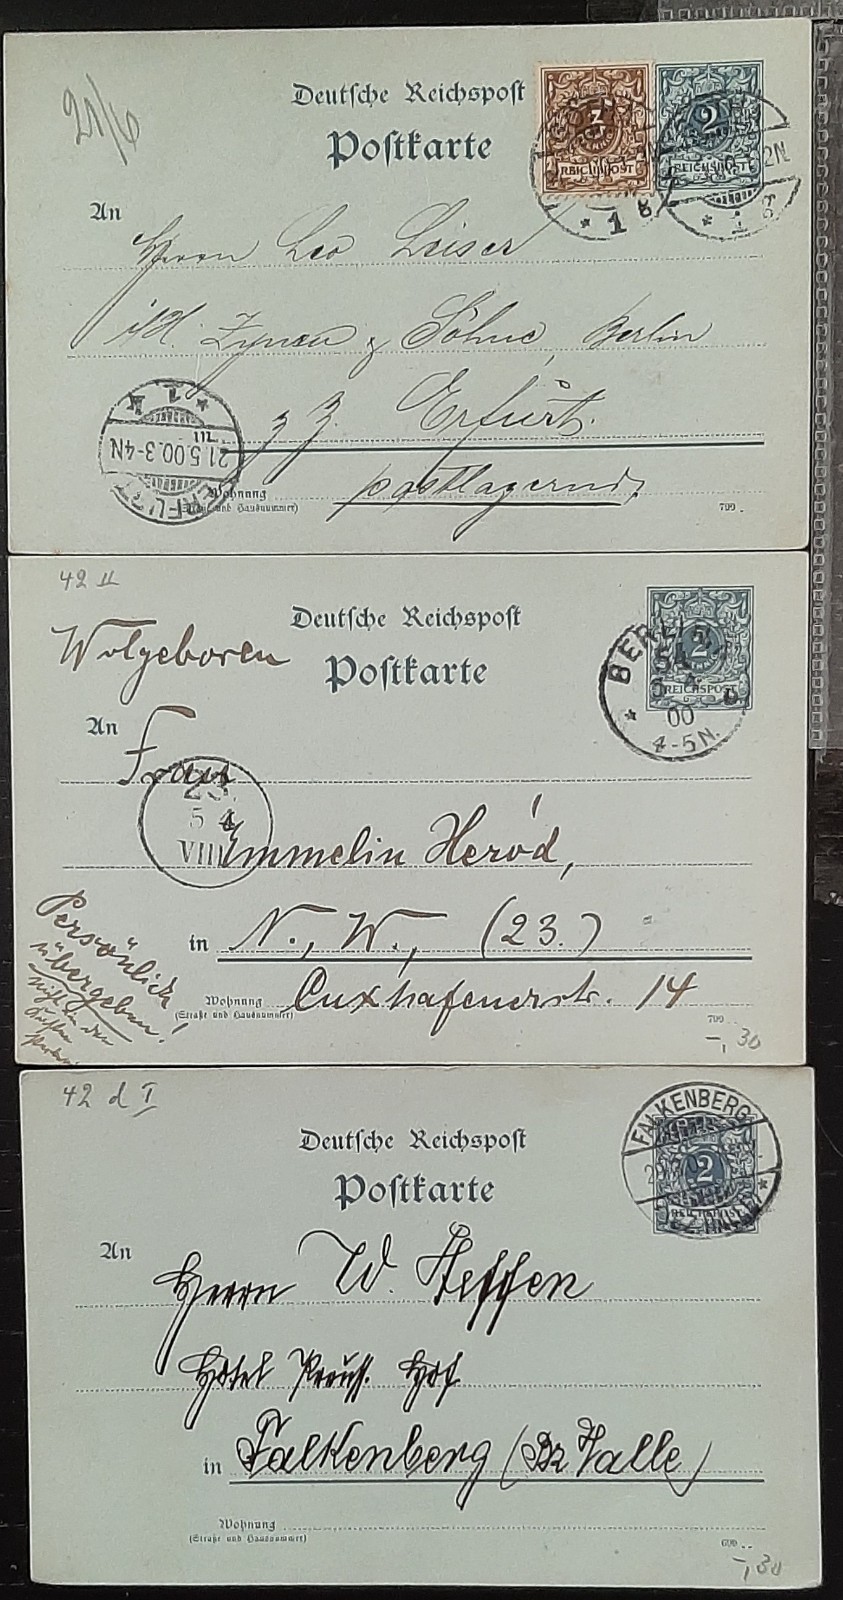 21/6
Deutsche Reichspost
Postkarte
3
REICHSPOST
2
REICHSPOST
An
Herrn Leo Leiser
Söhne, Berlin
z. Z. Erfurt.
postlagernd.
21.5.00.3-4N
ERFURT
Wohnung
(Straße und Hausnummer)
799.
42 II
Deutsche Reichspost
Postkarte
Wolgeboren
BERLIN
54
00
4-5N.
2
REICHSPOST
An
Frau
5 4
VIII
Emmelin Heród,
in N., W., (23.)
Persönlich
übergeben!
Wohnung
(Straße und Hausnummer)
Cuxhafenerstr. 14
799..
-,30
42 d I
Deutsche Reichspost
Postkarte
FALKENBERG
2
REICHSPOST
(BZ. HALLE)
An
Herrn W. Steffen
Hotel Preuss. Hof
in Falkenberg (Bz Halle)
Wohnung
(Straße und Hausnummer)
699..
-,30